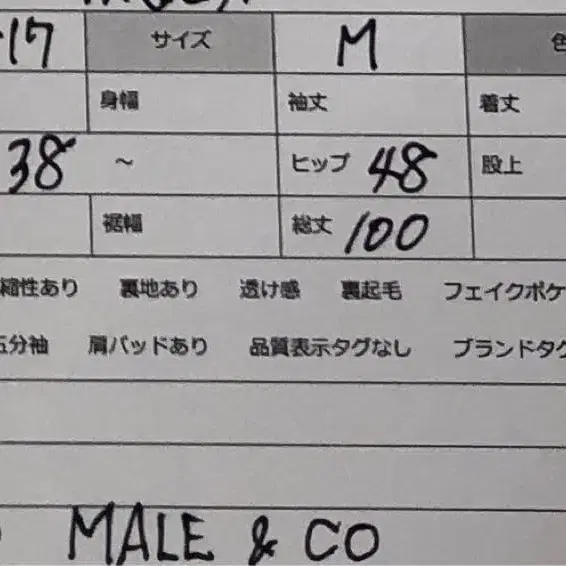 -17 サイズ M 色
身幅 袖丈 着丈
38 ～ ヒップ 48 股上
裾幅 総丈 100
縮性あり 裏地あり 透け感 裏起毛 フェイクポケ
五分袖 肩パッドあり 品質表示タグなし ブランドタグ
MALE & CO